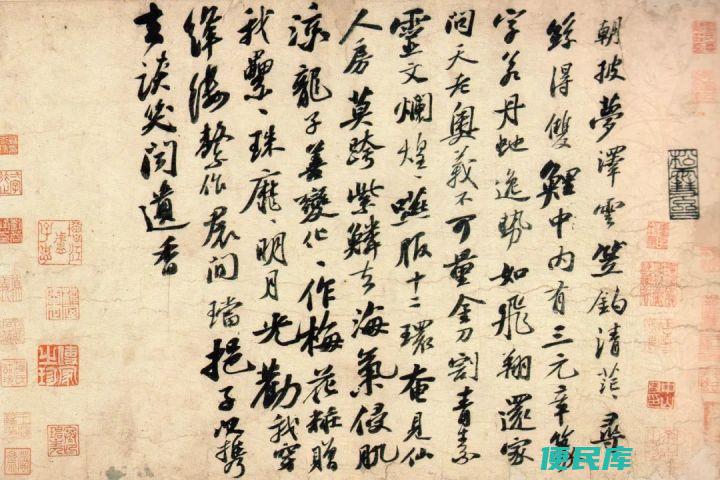 朝披夢澤雲笠釣清茫、尋
絲得雙鯉中内有三元章篆
字若丹虵逸勢如飛翔還家
問天老奥義不可量金刀割青素
靈文爛煌、嚥服十二環奄見仙
人房莫跨紫鱗去海氣侵肌
涼龍子善變化、作梅花粧贈
我纍、珠靡、明月光勸我穿
絳縷繫作裙間璫挹子以攜
去談笑聞遺香
便民库